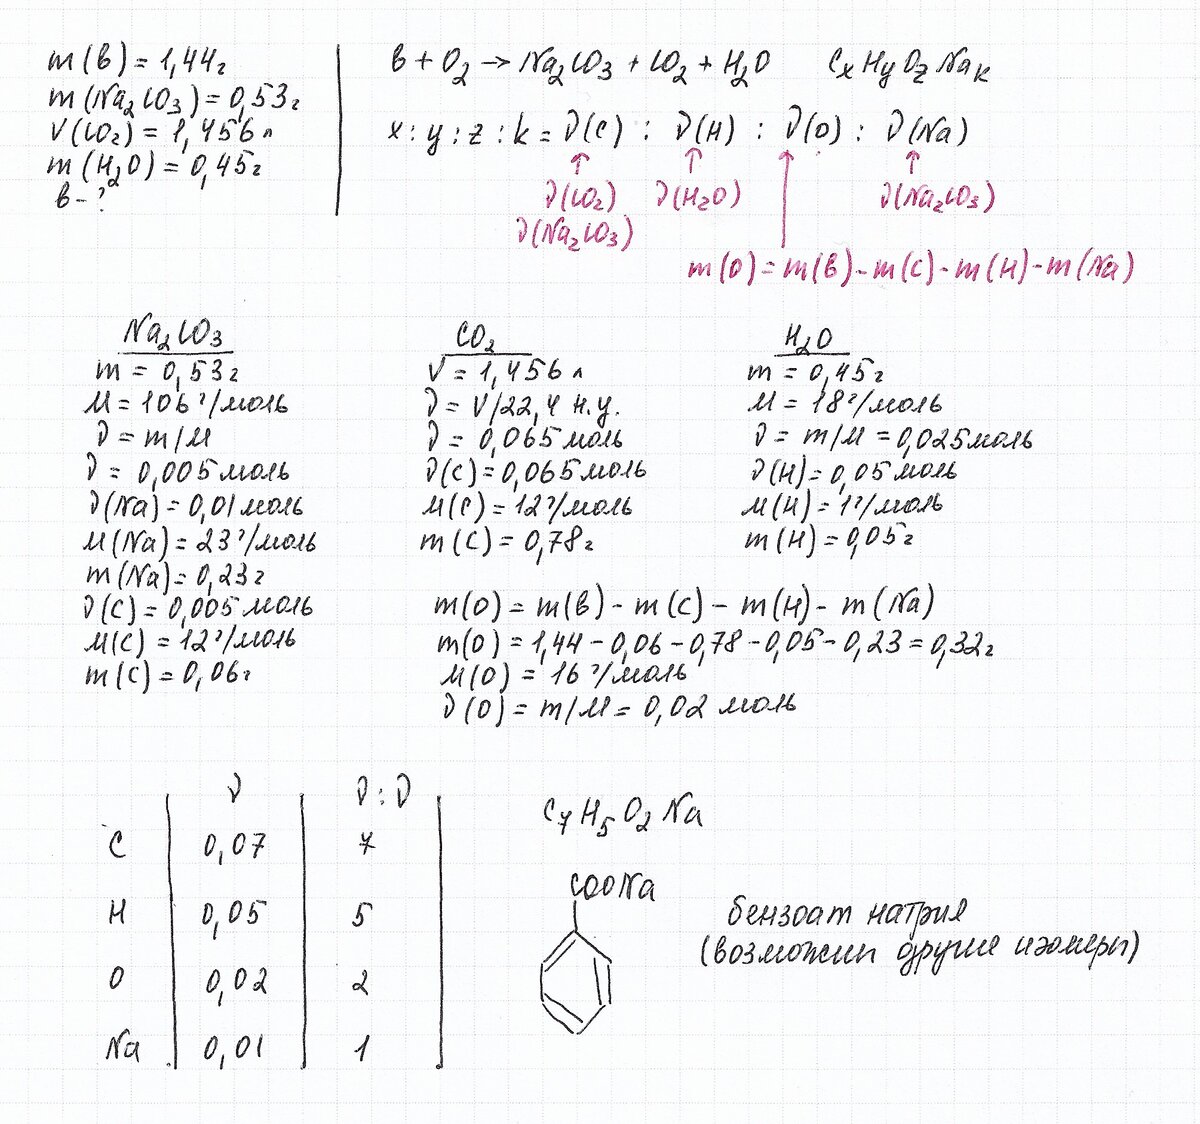 m(в) = 1,44г
m(Na₂CO₃) = 0,53г
V(CO₂) = 1,456л
m(H₂O) = 0,45г
в - ?
в + O₂ → Na₂CO₃ + CO₂ + H₂O CxHyOzNak
x : y : z : k = ν(C) : ν(H) : ν(O) : ν(Na)
ν(CO₂) ν(H₂O) ν(Na₂CO₃)
ν(Na₂CO₃)
m(O) = m(в) - m(C) - m(H) - m(Na)
Na₂CO₃
m = 0,53г
M = 106 г/моль
ν = m/M
ν = 0,005 моль
ν(Na) = 0,01 моль
M(Na) = 23 г/моль
m(Na) = 0,23г
ν(C) = 0,005 моль
M(C) = 12 г/моль
m(C) = 0,06г
CO₂
V = 1,456 л
ν = V/22,4 н.у.
ν = 0,065 моль
ν(C) = 0,065 моль
M(C) = 12 г/моль
m(C) = 0,78г
H₂O
m = 0,45г
M = 18 г/моль
ν = m/M = 0,025 моль
ν(H) = 0,05 моль
M(H) = 1 г/моль
m(H) = 0,05г
m(O) = m(в) - m(C) - m(H) - m(Na)
m(O) = 1,44 - 0,06 - 0,78 - 0,05 - 0,23 = 0,32г
M(O) = 16 г/моль
ν(O) = m/M = 0,02 моль
ν ν:ν
C 0,07 7
H 0,05 5
O 0,02 2
Na 0,01 1
C₇H₅O₂Na
COONa
бензоат натрия
(возможны другие изомеры)